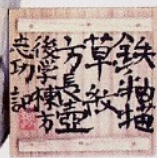 鉄釉描
草紋
方長壺
後学棟方
志功 記